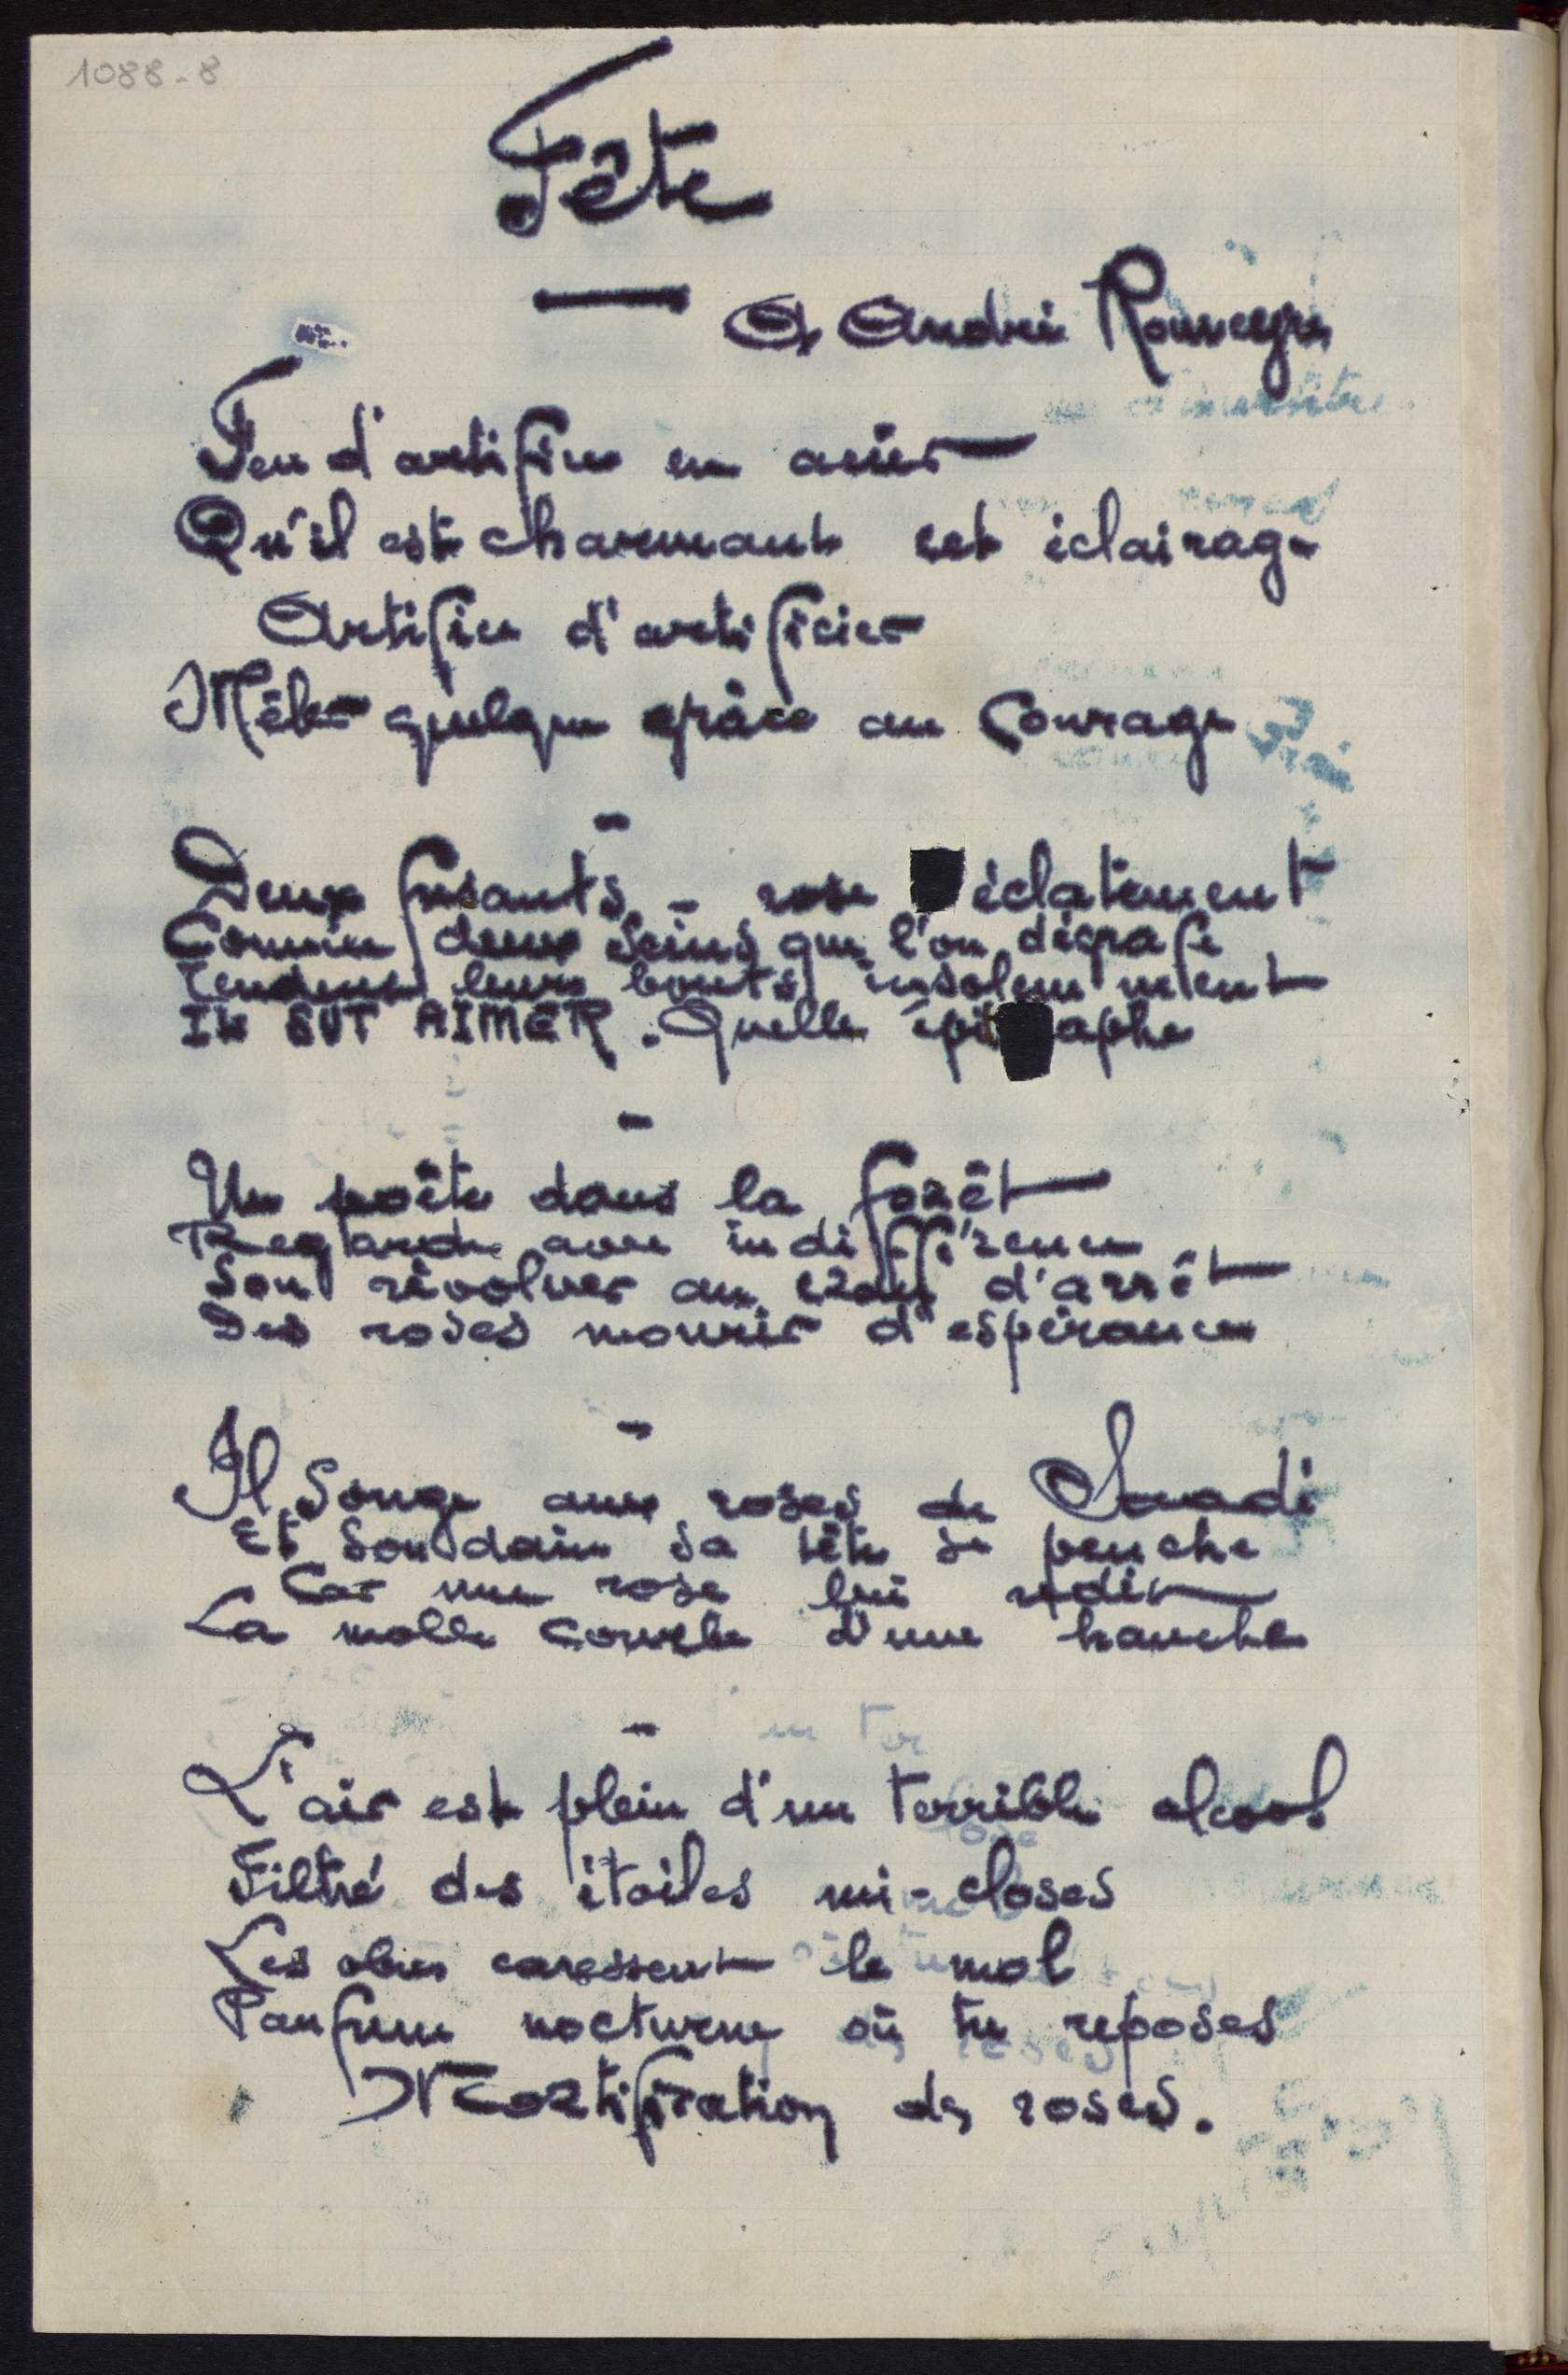 1088-8
Fête
A André Rouveyre
Feu d'artifice en acier
Qu'il est charmant cet éclairage
Artifice d'artificier
Mêler quelque grâce au Courage
Deux fusants - rose éclatement
Comme deux seins que l'on dégrafe
Tendent leurs bouts insolemment
IL SUT AIMER. Quelle épi aphe
Un poète dans la forêt
Regarde avec indifférence
Son révolver au cran d'arrêt
Des roses mourir d'espérance
Il Songe aux roses de Saadi
Et Soudain sa tête se penche
Car une rose lui redit
La molle Courbe d'une hanche
L'air est plein d'un terrible alcool
Filtré des étoiles mi-closes
Les obus caressent le mol
Parfum nocturne où tu reposes
Mortification des roses.